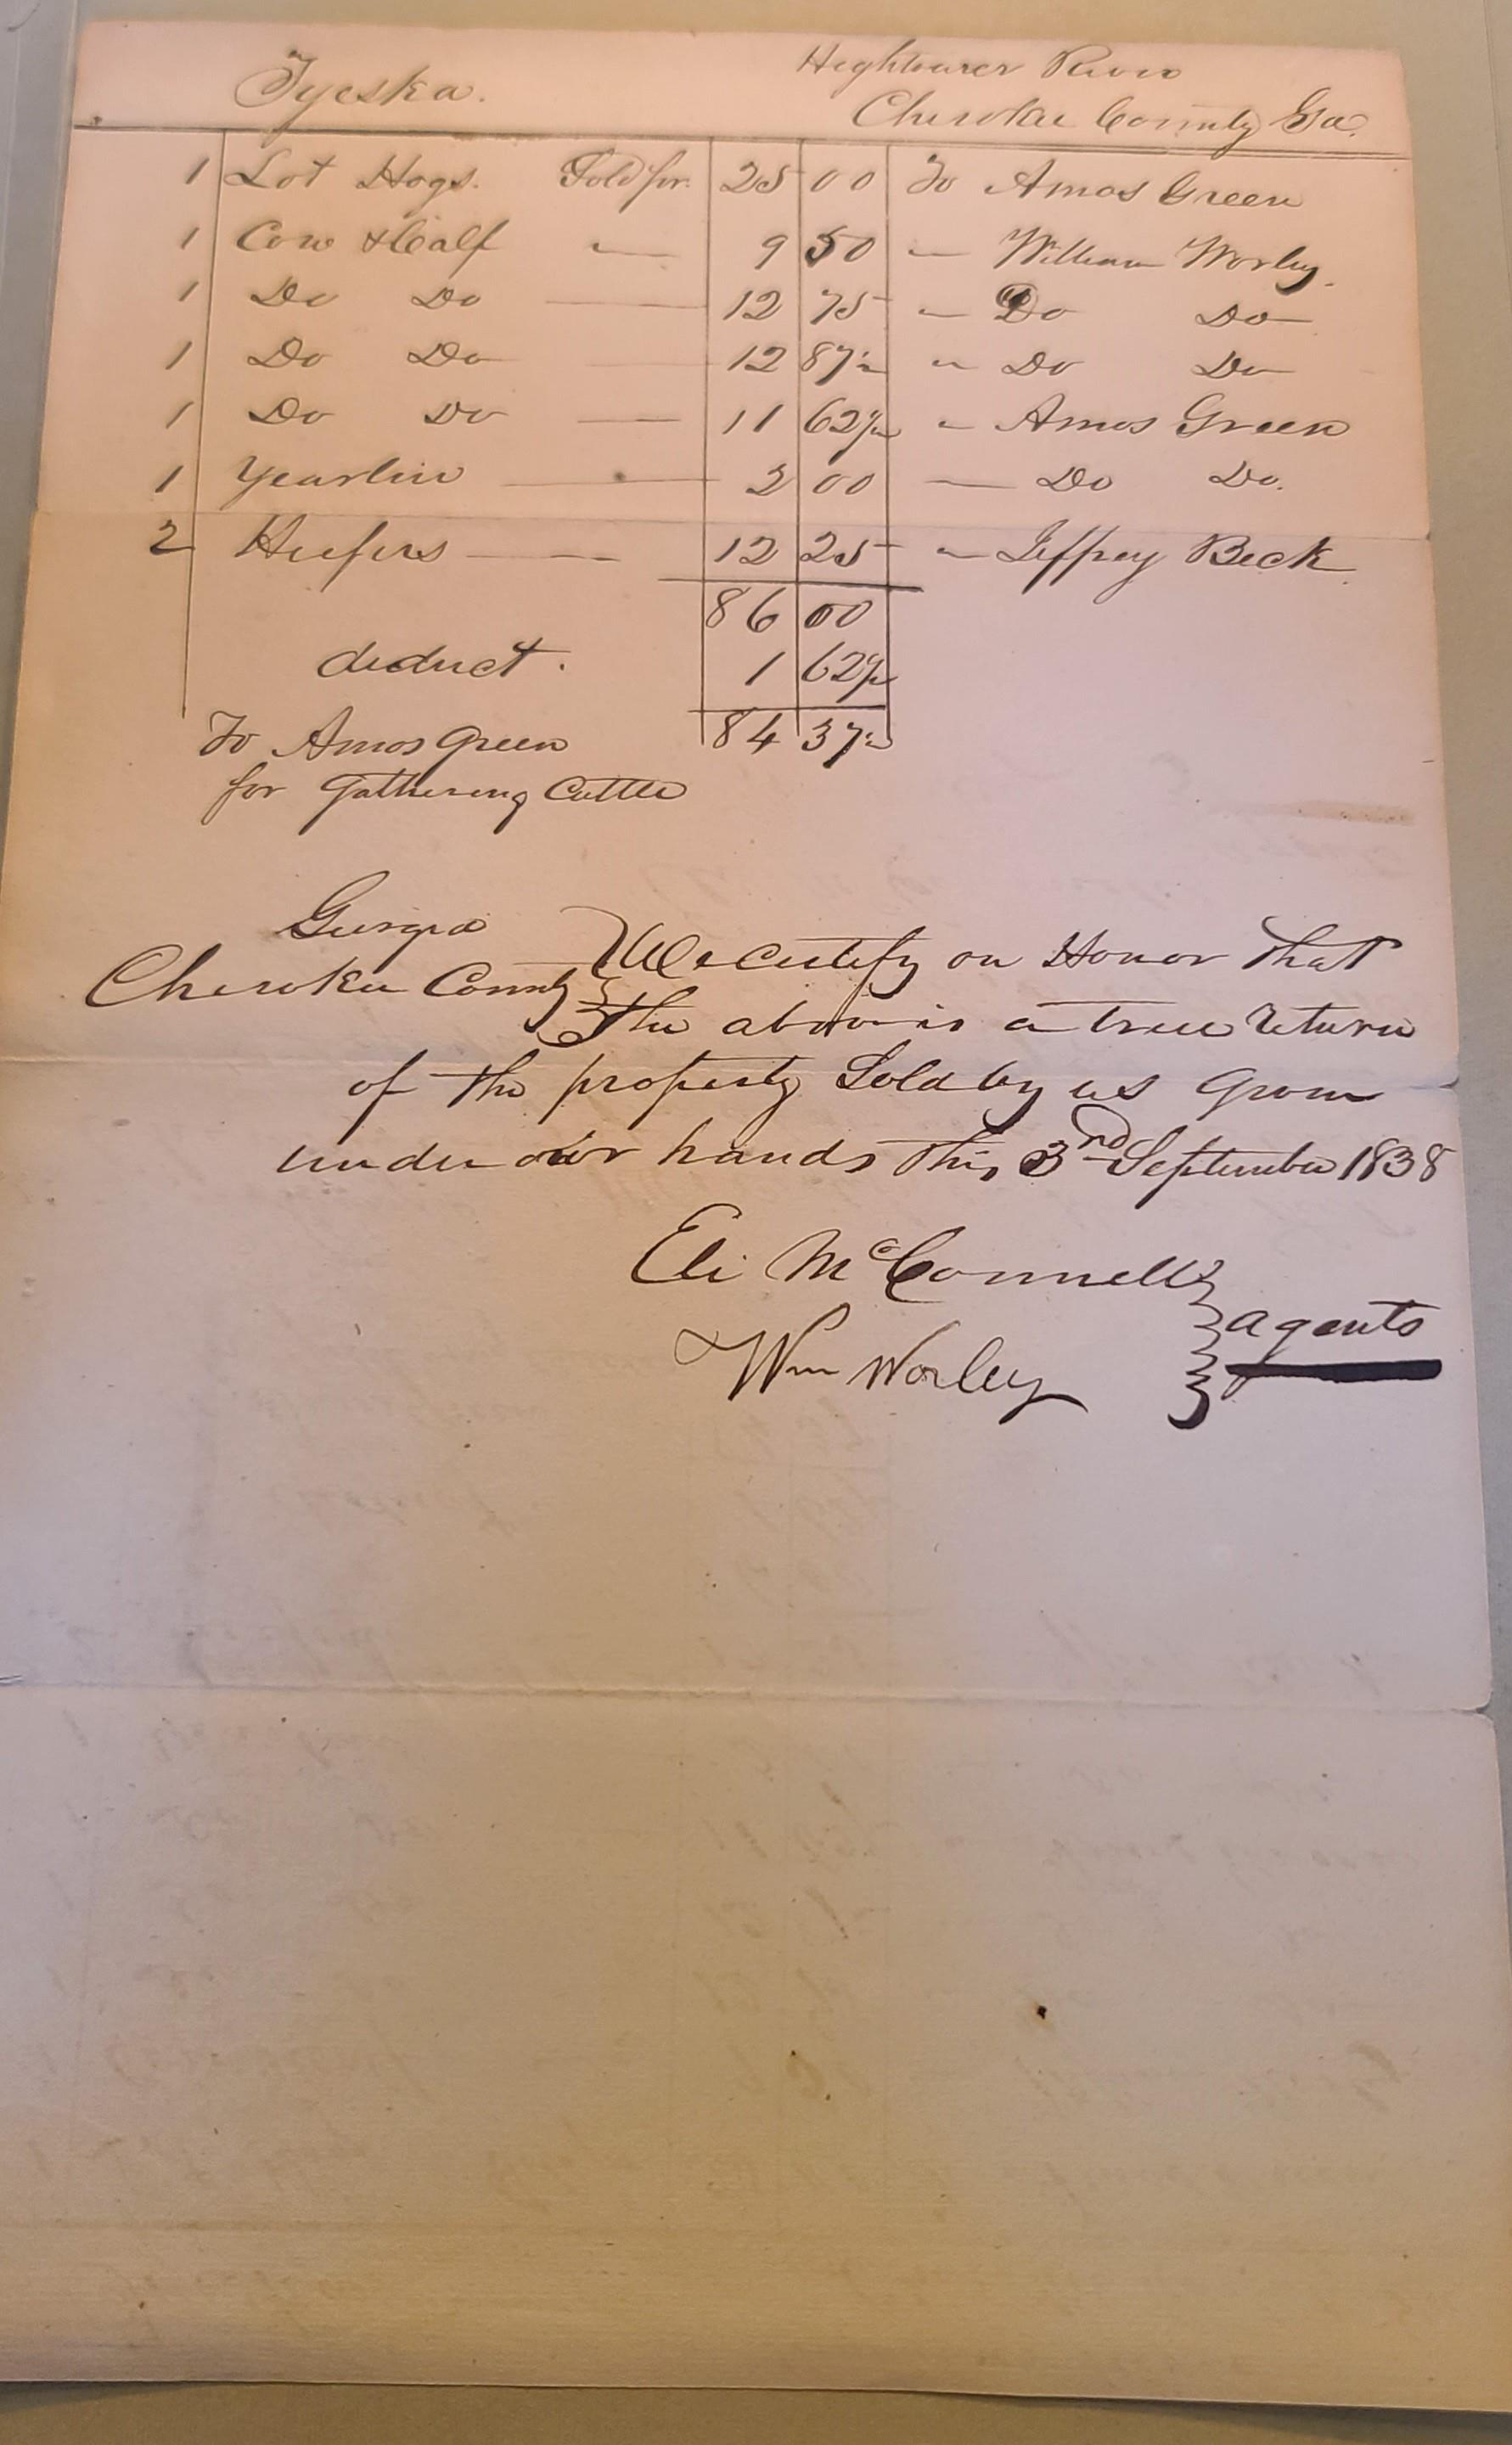 Tyeska. Hightower River
Cherokee County Ga.
1 Lot Hogs. Sold for. 25 00 To Amos Green
1 Cow & Calf — 9 50 — William Worley.
1 Do Do — 12 75 — Do Do
1 Do Do — 12 87½ " Do Do
1 Do Do — 11 62½ " Amos Green
1 Yearlin — 2 00 — Do Do.
2 Heifers — — 12 25 " Jeffrey Beck
86 00
deduct. 1 62½
To Amos Green 84 37½
for Gathering Cattle
Georgia
Cherokee County } We certify on Honor that
the above is a true return
of the property Sold by us Given
under our hands this 3rd September 1838
Eli McConnell
& Wm Worley } agents